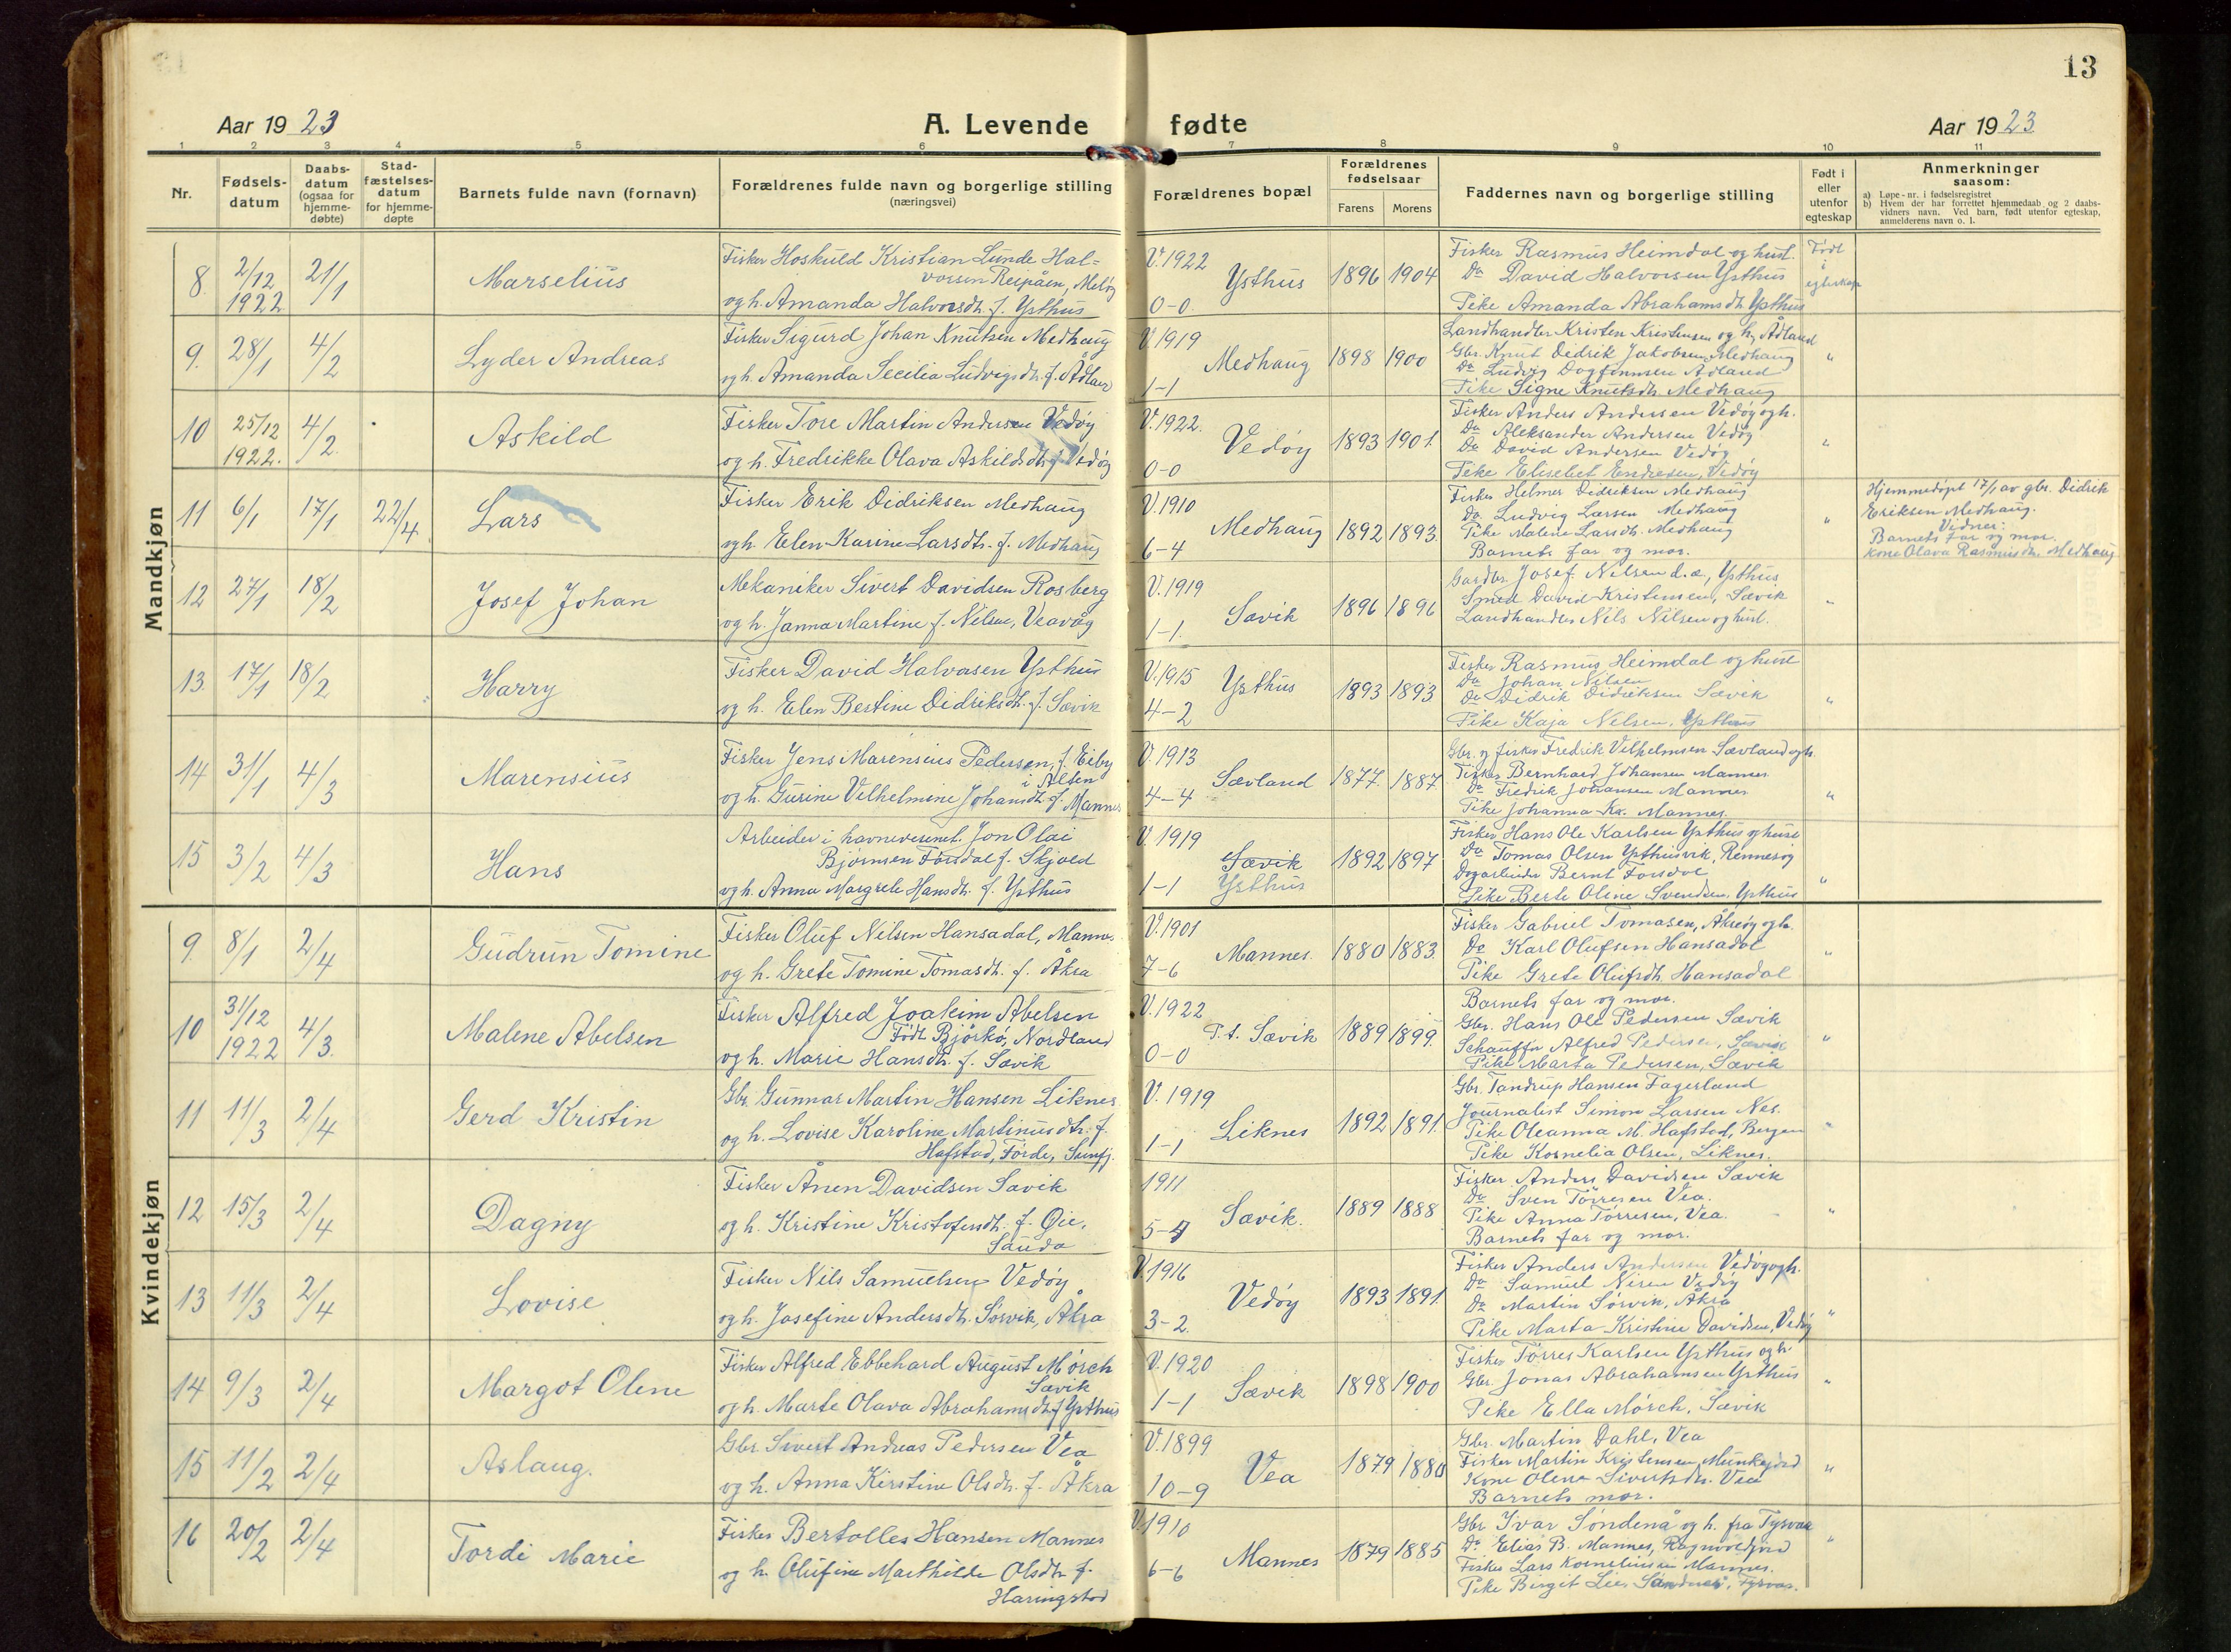 13
Aar 1923
A. Levende fødte
Aar 1923
1 2 3 4 5 6 7 8 9 10 11
Nr.
Fødsels-
datum
Daabs-
datum
(ogsaa for
hjemme-
døbte)
Stad-
fæstelses-
datum
for hjemme-
døpte
Barnets fulde navn (fornavn)
Forældrenes fulde navn og borgerlige stilling
(næringsvei)
Forældrenes bopæl
Forældrenes
fødselsaar
Farens Morens
Faddernes navn og borgerlige stilling
Født i
eller
utenfor
egteskap
Anmerkninger
saasom:
a) Løpe-nr. i fødselsregistret
b) Hvem der har forrettet hjemmedaab og 2 daabs-
vidners navn. Ved barn, født utenfor egteskap,
anmelderens navn o. l.
Mandkjøn
8. 2/12 1922 21/1 Marselius
Fisker Hoskuld Kristian Lunde Hal-
vorsen Reipåen, Meløy
og h. Amanda Halvorsdh. f. Ysthus
V. 1922
0-0.
Ysthus 1896 1904
Fisker Rasmus Heimdal og hust.
Do David Halvorsen Ysthus
Pike Amanda Abrahamsdh. Ysthus
Født
i
egteskap
9. 28/1 4/2 Lyder Andreas
Fisker Sigurd Johan Knutsen Medhaug
og h. Amanda Secilia Ludvigsdh. f. Ådland
V. 1919
1-1
Medhaug 1898 1900
Landhandler Kristen Kristensen og h, Ådland
Gbr. Knut Didrik Jakobsen, Medhaug
Do Ludvig Dogfinnsen Ådland
Pike Signe Knutsdh. Medhaug
"
10 25/12 1922. 4/2. Askild
Fisker Tore Martin Andersen Vedøy
og h. Fredrikke Olava Askildsdh. f. Vedøy
V. 1922.
0-0
Vedøy 1893 1901.
Fisker Anders Andersen Vedøy og h.
Do Aleksander Andersen Vedøy
Do David Andersen Vedøy
Pike Elisebet Endresen, Vedøy
"
11 6/1 17/1 22/4. Lars
Fisker Erik Didriksen Medhaug
og h. Elen Karine Larsdh. f. Medhaug
V. 1910
6-4
Medhaug 1892 1893
Fisker Helmer Didriksen Medhaug
Do Ludvig Larsen Medhaug
Pike Malene Larsdh. Medhaug
Barnets far og mor.
"
Hjemmedøpt 17/1 av gbr. Didrik
Eriksen Medhaug.
Vidner:
Barnets far og mor.
kone Olava Rasmusdh. Medhaug.
12 27/1 18/2 Josef Johan
Mekaniker Sivert Davidsen Rosberg
og h. Janna Martine f. Nilsen, Veavåg
V. 1919
1-1.
Sævik 1896 1896
Gardbr. Josef Nilsen d.æ., Ysthus
Smed David Kristensen, Sævik
Landhandler Nils Nilsen og hust.
"
13. 17/1 18/2 Harry
Fisker David Halvorsen Ysthus
og h. Elen Bertine Didriksdh. f. Sævik
V. 1915
4-2
Ysthus 1893 1893
Fisker Rasmus Heimdal og hust
Do Johan Nilsen
Do Didrik Didriksen Sævik
Pike Kaja Nilsen, Ysthus
"
14 31/1 4/3 Marensius
Fisker Jens Marensius Pedersen, f. Eiby
i Alten
og h. Gurine Velhelmine Johansdh. f. Mannes
V. 1913
4-4
Sævland 1877. 1887
Gbr. og fisker Fredrik Velhelmsen Sævland og h.
Fisker Bernhard Johansen Mannes
Do Fredrik Johansen Mannes
Pike Johanna Kr. Mannes.
"
15 3/2 4/3 Hans
Arbeider i havnevesenet Jon Olai
Bjørnsen Førsdal f. Skjold
og h. Anna Margrete Hansdh. f. Ysthus
V. 1919
1-1
Sævik
Ysthus
1892 1897
Fisker Hans Ole Karlsen Ysthus og hust
Do Tomas Olsen Ysthusvik, Rennesøy
Dagarbeider Bernt Førsdal
Pike Berte Oline Svendsen, Ysthus
"
Kvindekjøn
9. 8/1 2/4 Gudrun Tomine
Fisker Oluf Nilsen Hansadal, Mannes
og h. Grete Tomine Tomasdh. f. Åkra
V. 1901
7-6
Mannes. 1880 1883.
Fisker Gabriel Tomasen, Åkrøy og h.
Do Karl Olufsen Hansadal
Pike Grete Olufsdh. Hansadal
"
10 31/12 1922 4/3. Malene Abelsen
Fisker Alfred Joakim Abelsen
Født Bjørkø, Nordland
og h. Marie Hansdh. f. Sævik
V. 1922
0-0
P.t. Sævik 1889 1899.
Barnets far og mor.
Gbr. Hans Ole Pedersen Sævik
Schauffør Alfred Pedersen, Sævik
Pike Marta Pedersen, Sævik
"
11 11/3 2/4 Gerd Kristin
Gbr. Gunnar Martin Hansen Liknes.
og h. Lovise Karoline Martinusdh. f.
Hafstad, Førde, Sunfj.
V. 1919
1-1
Liknes 1892 1891.
Gbr. Tandrup Hansen Fagerland
Journalist Simon Larsen Nes.
Pike Oleanna M. Hafstad, Bergen
Pike Kornelia Olsen, Liknes.
"
12 15/3 2/4 Dagny
Fisker Ånen Davidsen Sævik
og h. Kristine Kristofersdh. f. Øie,
Sauda
1911
5-4
Sævik. 1889 1888
Fisker Anders Davidsen Sævik
Do Sven Tørresen Vea.
Pike Anna Tørresen, Vea.
Barnets far og mor.
"
13 11/3 2/4 Lovise
Fisker Nils Samuelsen Vedøy
og h. Josefine Andersdh. Sørvik, Åkra
V. 1916
3-2.
Vedøy 1893 1891.
Fisker Anders Andersen Vedøy og h.
Do Samuel Nisen Vedøy
Do Martin Sørvik, Åkra
Pike Marta Kristine Davidsen, Vedøy
"
14 9/3 2/4 Margot Olene
Fisker Alfred Ebbehard August Mørch
Sævik
og h. Marte Olava Abrahamsdh. f. Ysthus
V. 1920
1-1
Sævik 1898 1900
Fisker Tørres Karlsen Ysthus og h.
Gbr. Jonas Abrahamsen Ysthus
Pike Ella Mørch, Sævik
"
15 11/2 2/4 Aslaug.
Gbr Sivert Andreas Pedersen Vea
og h. Anna Kirstine Olsdh. f. Åkra
V. 1899
10-9
Vea 1879 1880
Gbr. Martin Dahl, Vea
Fisker Martin Kristensen, Munkejord
Kone Olena Sivertsdh. Vea
Barnets mor.
"
16 20/2 2/4 Tordi Marie
Fisker Bertolles Hansen Mannes
og h. Olufine Marthilde Olsdh. f.
Haringstad
V. 1910
6-6
Mannes 1879 1885
Gbr Ivar Søndenå og h. fra Tysvær
Do Elias B. Mannes, Ragnvoldjord
Fisker Lars Kornelius Mannes.
Pike Birgit Lise Søndenå, Tysvær.
"